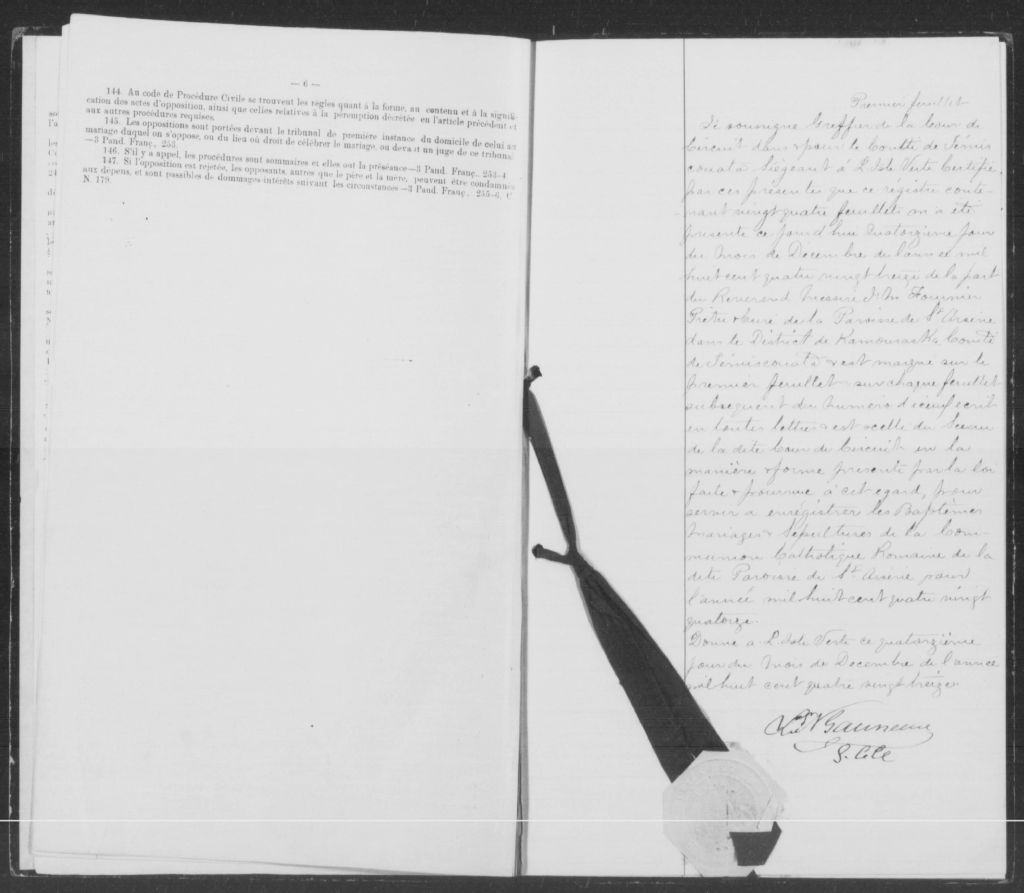 — 6 —
144. Au code de Procédure Civile se trouvent les règles quant à la forme, au contenu et à la signifi-
cation des actes d'opposition, ainsi que celles relatives à la péremption décrétée en l'article précédent et
aux autres procédures requises.
145. Les oppositions sont portées devant le tribunal de première instance du domicile de celui au
mariage duquel on s'oppose, ou du lieu où droit de célébrer le mariage, ou devant un juge de ce tribunal
—3 Pand. Franç. 253.
146. S'il y a appel, les procédures sont sommaires et elles ont la préséance—3 Pand. Franç. 253-4
147. Si l'opposition est rejetée, les opposants, autres que le père et la mère, peuvent être condamnés
aux dépens, et sont passibles de dommages-intérêts suivant les circonstances—3 Pand. Franç. 255-6. C
N. 179.
Premier feuillet
Je soussigné Greffier de la Cour de
Circuit dans & pour le Comté de Témis
couata Siégeant à L'Isle Verte Certifie
par ces présentes que ce registre conte-
nant vingt quatre feuillets m'a été
présenté ce jourd'hui Quatorzième jour
du Mois de Décembre de l'année mil
huit cent quatre vingt treize de la part
du Reverend Messire J. M Fournier
Prêtre & Curé de la Paroisse de St Arsène
dans le District de Kamouraska, Comté
de Témiscouata & est marqué sur le
premier feuillet & sur chaque feuillet
subsequent du Numéro d'icelui écrit
en toutes lettres & est scellé du Sceau
de la dite Cour de Circuit en la
manière & forme présenté par la loi
faite & pourvue à cet egard, pour
servir a enrégistrer les Baptêmes
Mariages & Sépultures de la Com-
munion Catholique Romaine de la
dite Paroisse de St Arsène pour
l'année mil huit cent quatre vingt
quatorze.
Donné a L'Isle Verte ce quatorzième
jour du Mois de Decembre de l'année
mil huit cent quatre vingt treize.